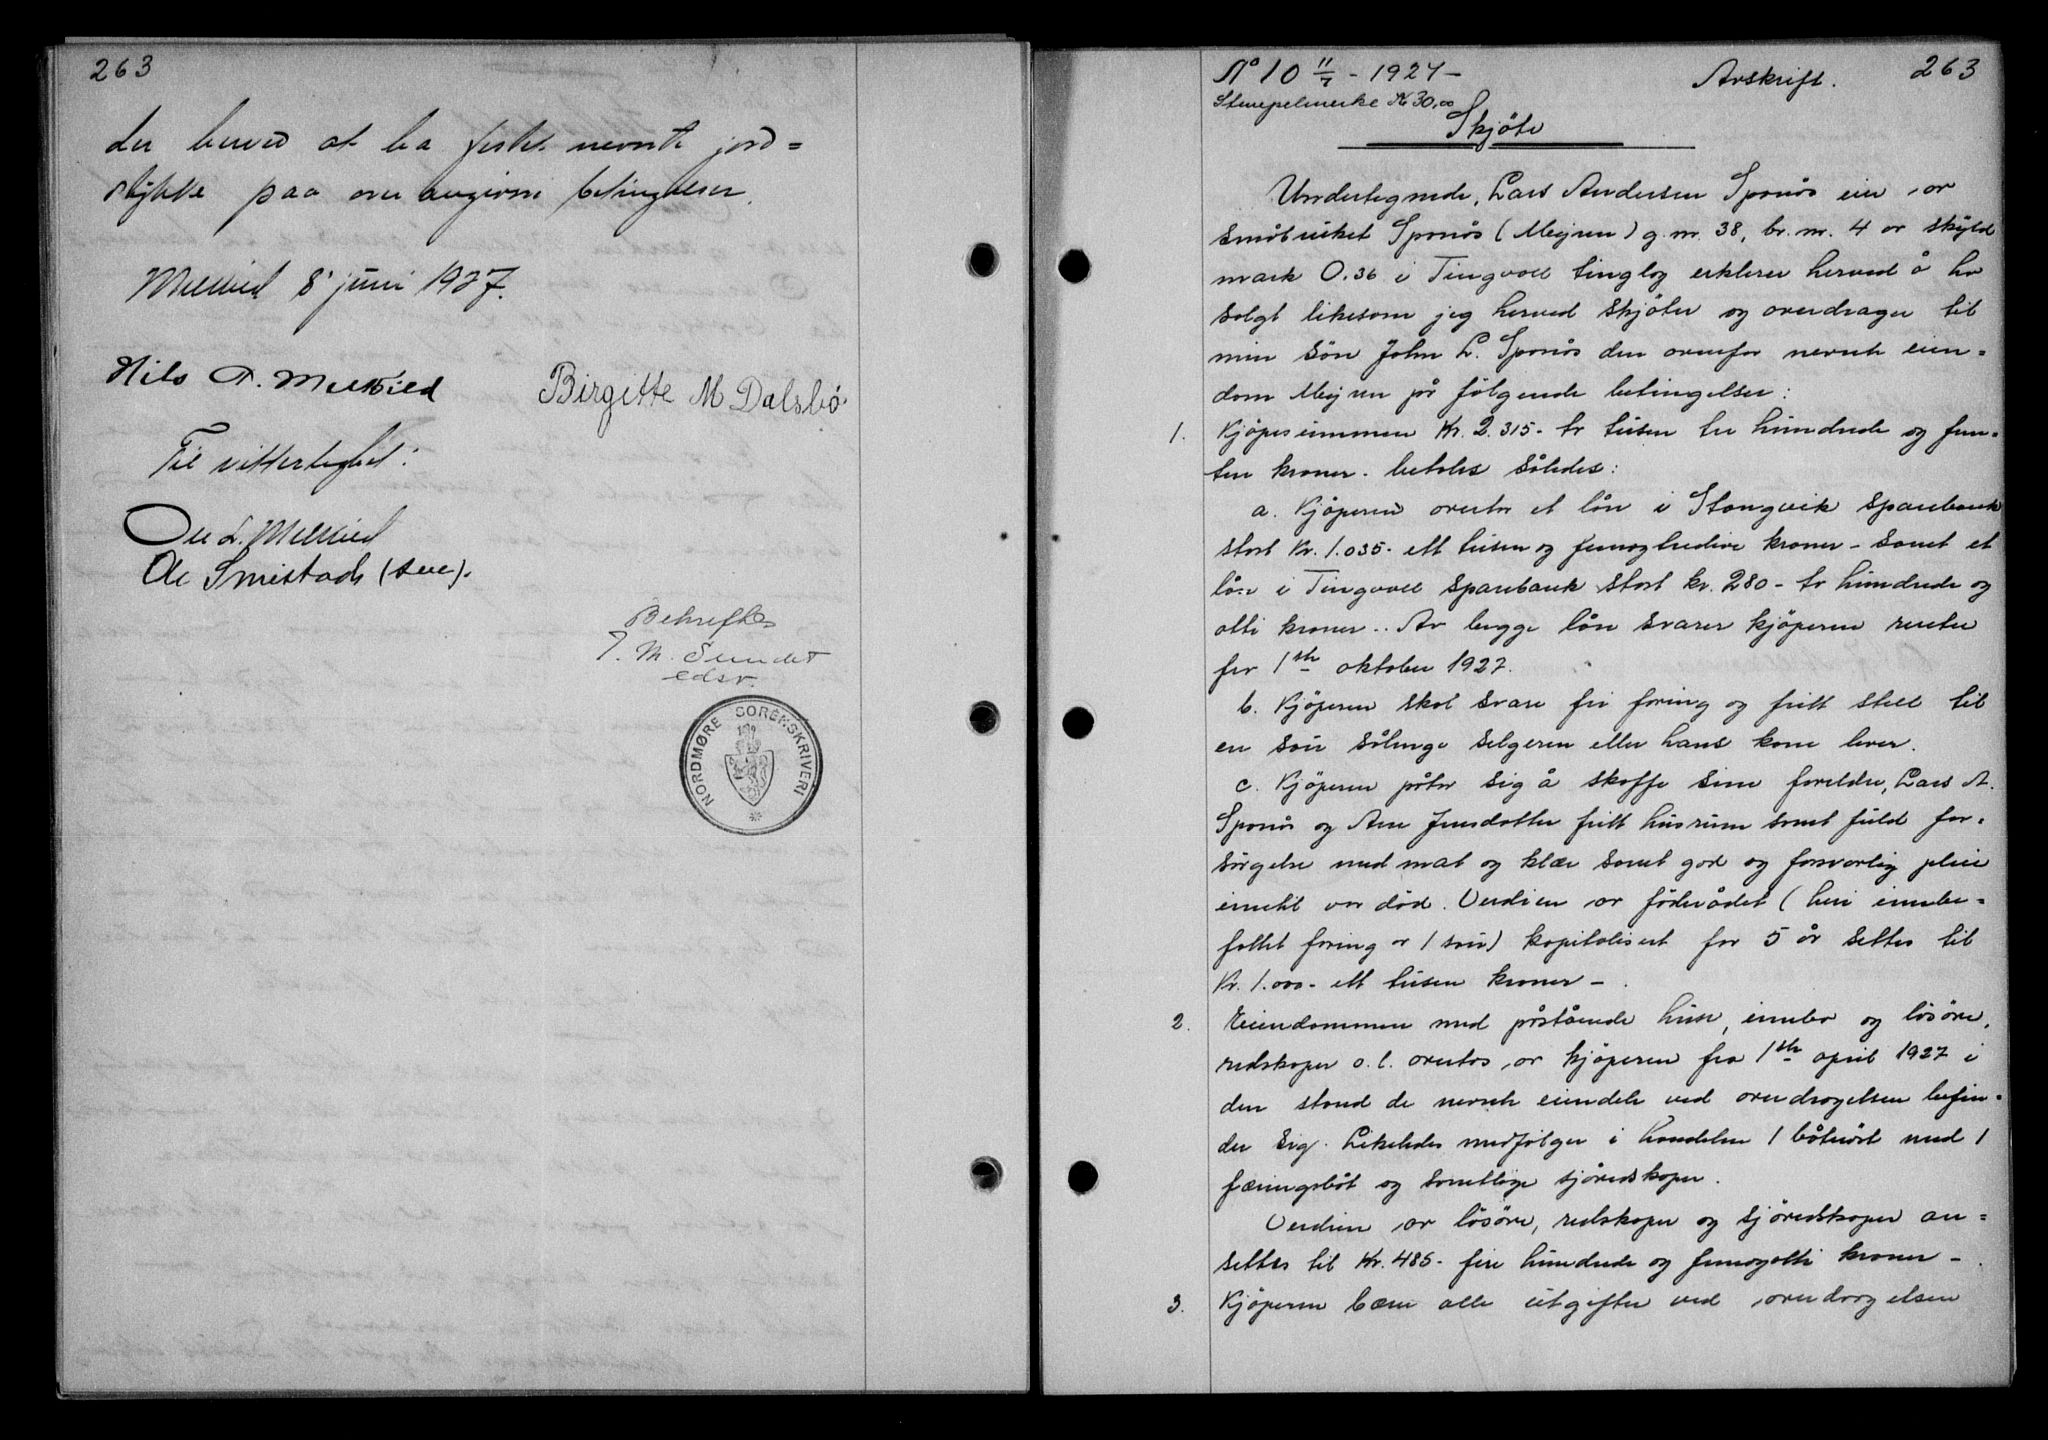 263
der herved at ha festet nevnte jord=
stykke paa over angivne betingelser.
Melkild 8' juni 1927.
Nils A. Melkild
Birgitte M Dalsbö
Til vitterlighet:
Ole L. Melkild
Ole Smistads (sen).
Bekreftes
T. M. Sundet
edsv.
NORDMØRE SORENSKRIVERI
263
No 10 11/7 - 1927 -
Avskrift.
Stempelmerke Kr 30,00
Skjöte
Undertegnede, Lars Andersen Sponås eier av
småbruket Sponås (Mejren) g. nr. 38, br. nr. 4 av skyld
mark 0.36 i Tingvoll tinglag erklærer herved å ha
solgt likesom jeg herved skjöter og overdrager til
min sön John L. Sponås den ovenfor nevnte eien=
dom Mejren på fölgende betingelser:
1. Kjöpesummen Kr. 2.315- to tusen tre hundrede og fem=
ten kroner. betales således:
a. Kjöperen overtar et lån i Stangvik sparebank
stort Kr. 1.035- ett tusen og femogtredive kroner - samt et
lån i Tingvoll sparebank stort kr. 280- to hundrede og
otti kroner. - Av begge lån svarer kjöperen renter
fra 1ste oktober 1927.
b. Kjöperen skal svare fri foring og fritt stell til
en sau sålenge selgeren eller hans kone lever.
c. Kjöperen påtar sig å skaffe sine foreldre, Lars A.
Sponås og Ane Jensdatter fritt husrum samt fuld for=
sörgelse med mat og klær samt god og forsvarlig pleie
inntil vor död. Verdien av föderådet (heri innbe=
fattet foring av 1 sau) kapitalisert for 5 år settes til
Kr. 1.000- ett tusen kroner -
2. Eiendommen med påstående huse, innbo og lösöre,
redskaper o. l. overtas av kjöperen fra 1ste april 1927 i
den stand de nevnte eiendele ved overdragelsen befin=
der sig. Likeledes medfölger i handelen 1 båtnöst med 1
færingsbåt og samtlige sjöredskaper.
Verdien av lösöre, redskaper og sjöredskaper an=
settes til Kr. 485- fire hundrede og femogotti kroner -
3. Kjöperen bærer alle utgifter ved overdragelsen